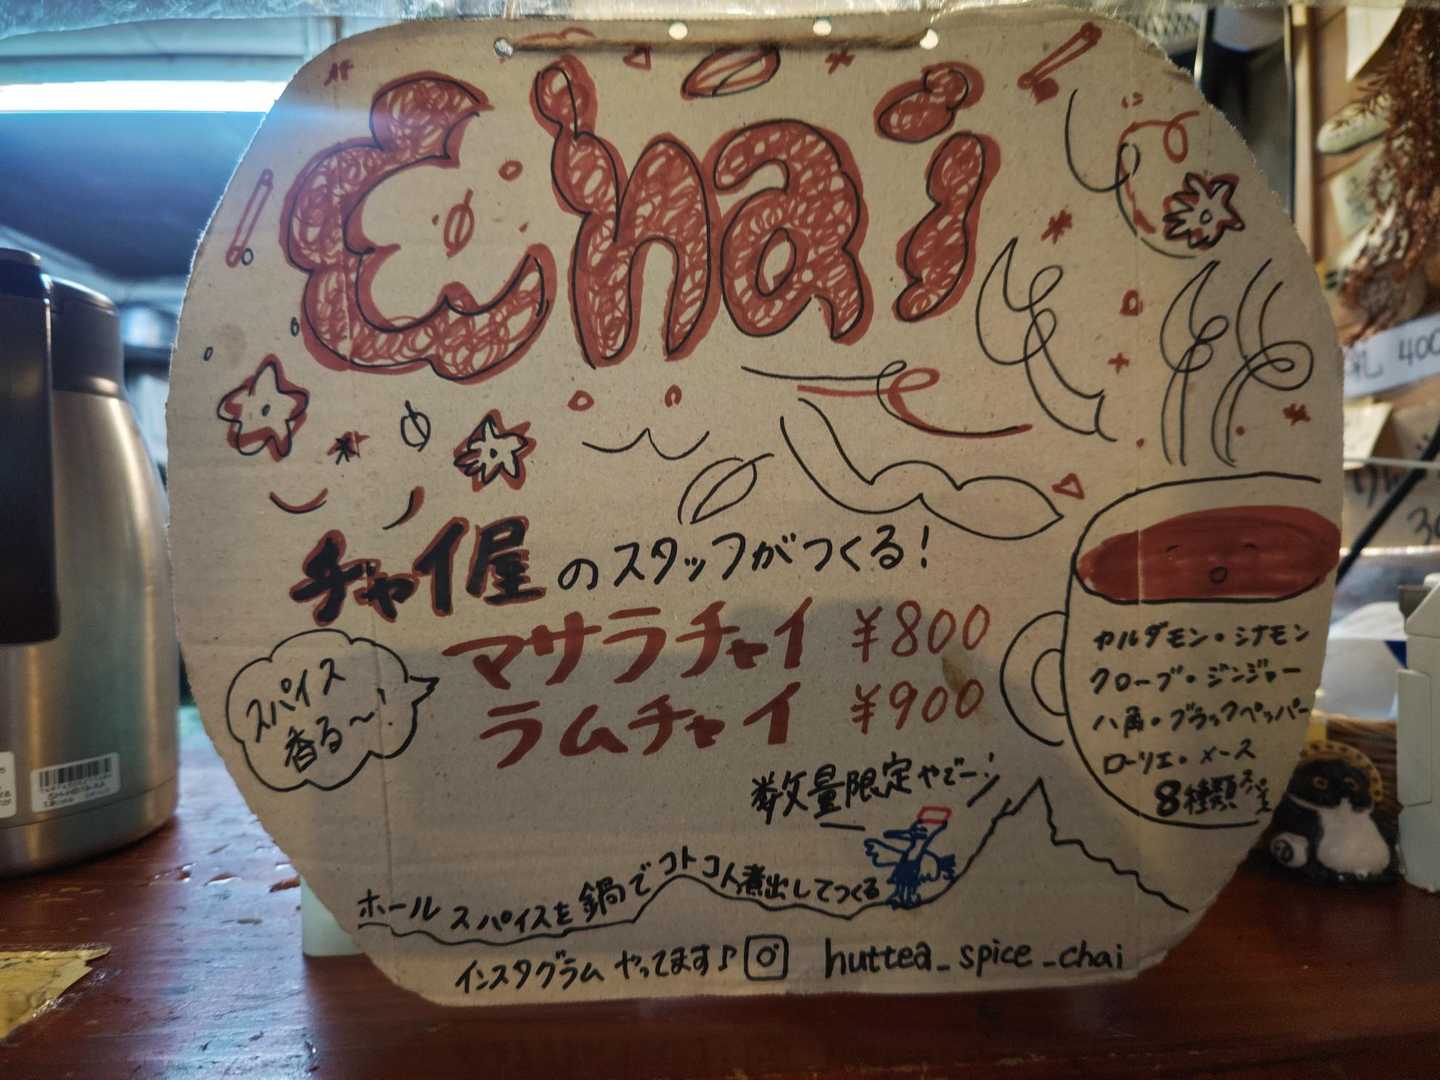 Chai
チャイ屋のスタッフがつくる!
マサラチャイ ¥800
ラムチャイ ¥900
スパイス
香る〜!
カルダモン・シナモン
クローブ・ジンジャー
八角・ブラックペッパー
ローリエ・メース
8種類
数量限定やでーン
ホールスパイスを鍋でコトコト煮出してつくる
インスタグラムやってます♪ huttea_spice_chai
400
30